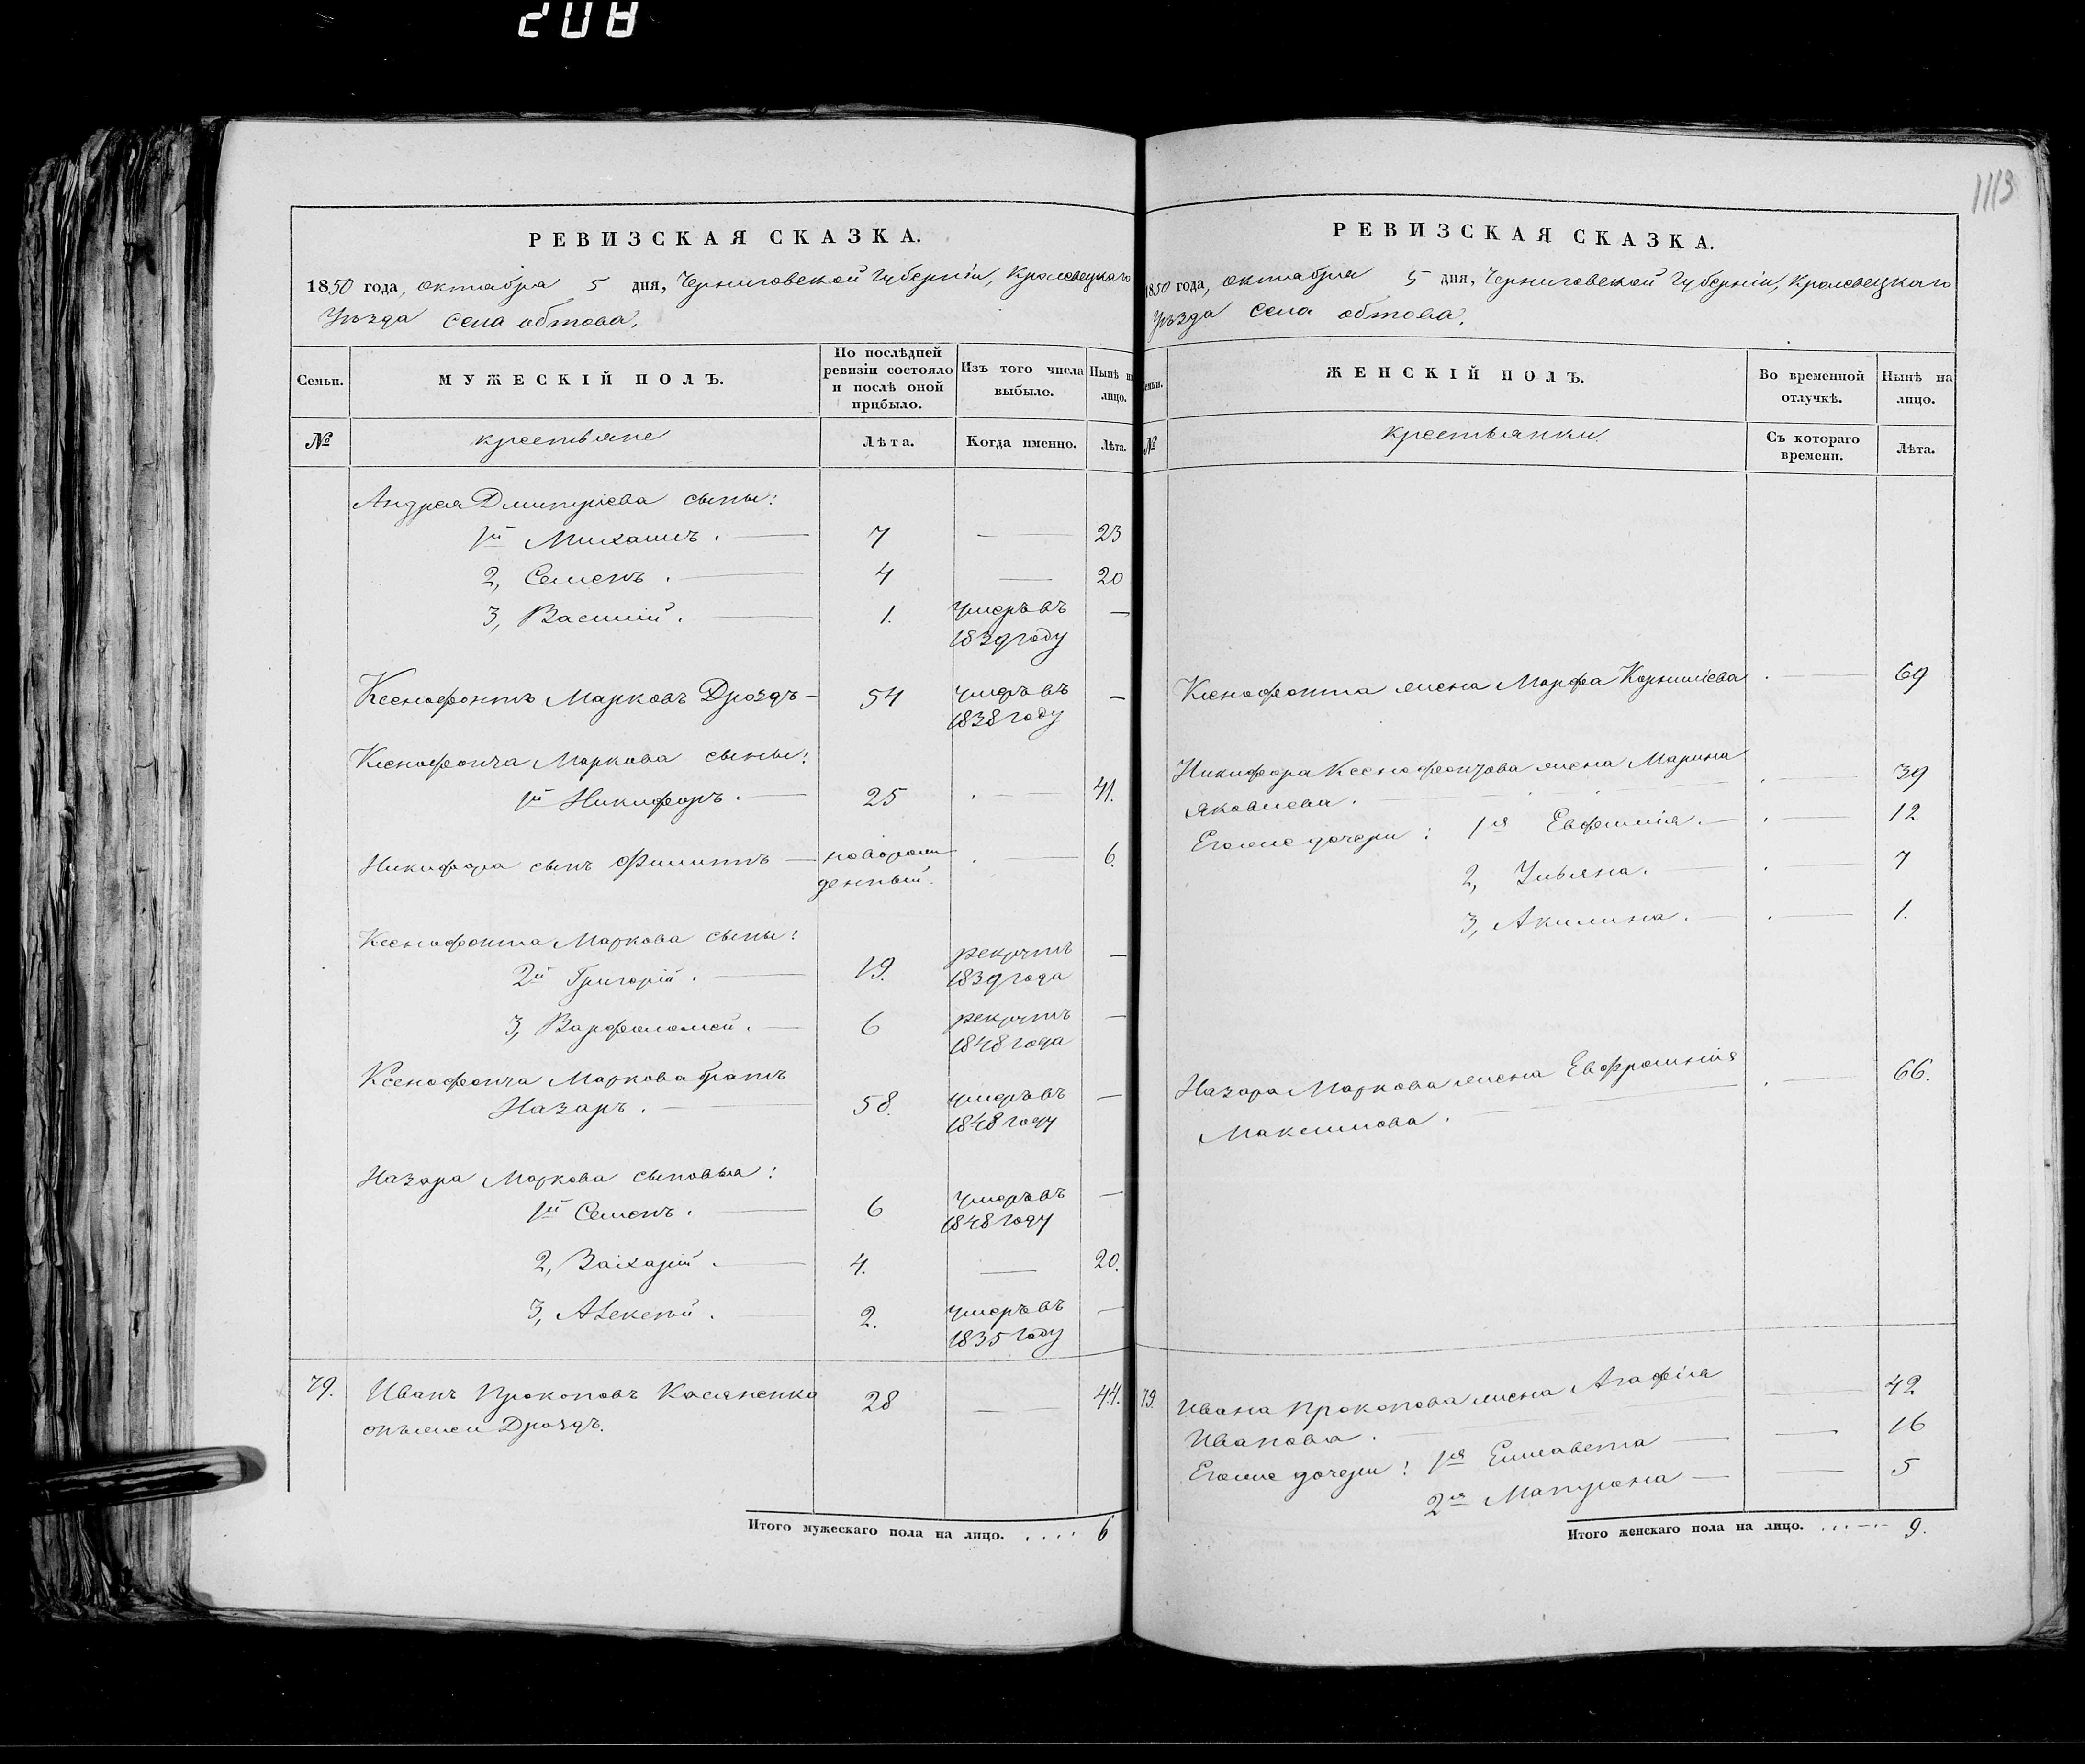 208
1113
РЕВИЗСКАЯ СКАЗКА.
1850 года, октября 5 дня, Черниговской Губерніи, Кролевецкаго
Уѣзда Села обтова.
Семьи.
МУЖЕСКІЙ ПОЛЪ.
По послѣдней ревизіи состояло и послѣ оной прибыло.
Изъ того числа выбыло.
Нынѣ на лицо.
№
крестьяне
Лѣта.
Когда именно.
Лѣта.
Андрея Дмитріева сыны:
1й Михаилъ. 7 — 23
2, Семенъ. 4 — 20
3, Василій. 1. умеръ въ —
1839 году
Ксенофонтъ Марковъ Дроздъ — 54 умеръ въ —
1838 году
Ксенофонта Маркова сыны:
1й Никифоръ. 25 — 41.
Никифора сынъ Филиппъ — новорож 6.
денный.
Ксенофонта Маркова сыны:
2й Григорій. 19. рекрутъ —
1839 года
3, Варфоломей. 6 рекрутъ —
1848 года
Ксенофонта Маркова братъ
Назаръ. 58. умеръ въ —
1848 году
Назара Маркова сыновья:
1й Семенъ. 6 умеръ въ —
1848 году
2, Захарій. 4. — 20.
3, Алексѣй. 2. умеръ въ —
1835 году
79. Иванъ Прокоповъ Касяненко 28 — 44.
онъ же и Дроздъ.
Итого мужескаго пола на лицо. .... 6
РЕВИЗСКАЯ СКАЗКА.
1850 года, октября 5 дня, Черниговской Губерніи, Кролевецкаго
Уѣзда Села обтова.
Семьи.
ЖЕНСКІЙ ПОЛЪ.
Во временной отлучкѣ.
Нынѣ на лицо.
№
крестьянки
Съ котораго времени.
Лѣта.
Ксенофонта жена Марфа Корниліева — 69
Никифора Ксенофонтова жена Марина
Яковлева. — 39
Его же дочери: 1я Евфимія. — 12
2, Ульяна. — 7
3, Акилина. — 1.
Назара Маркова жена Евфросинія — 66.
Максимова.
79. Ивана Прокопова жена Агафія — 42
Иванова.
Его же дочери: 1я Елисавета — 16
2я Матрона — 5
Итого женскаго пола на лицо. .... 9.